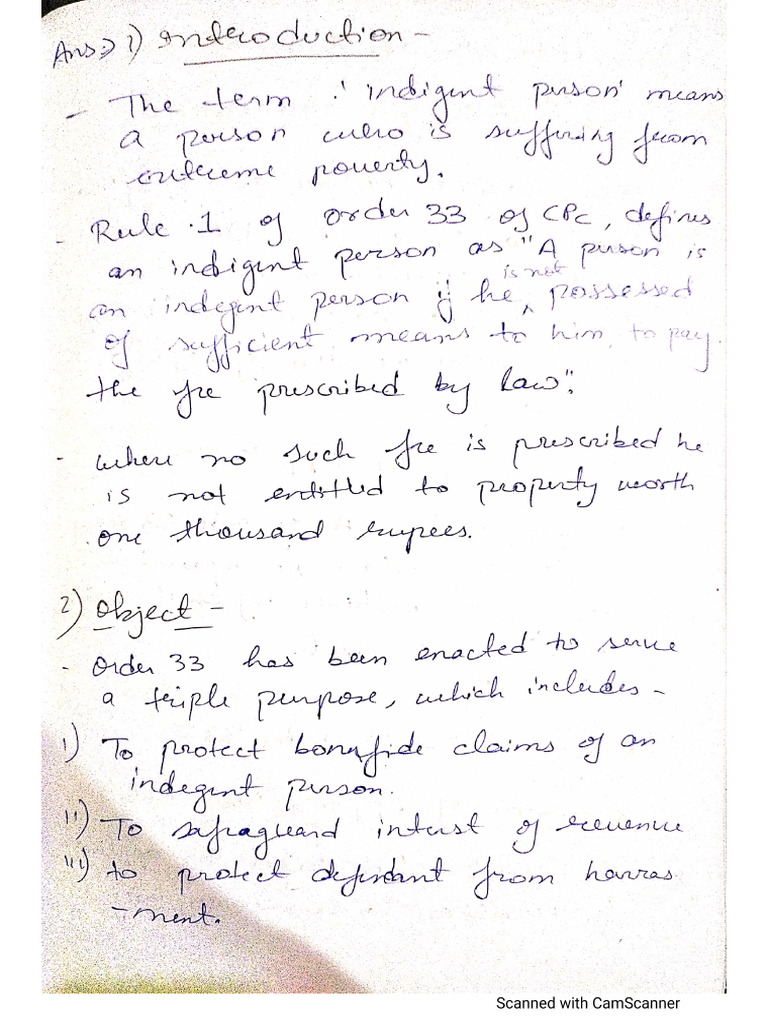 Ans⇒ 1) Introduction -
- The term 'indigent person' means
a person who is suffering from
extreme poverty.
- Rule 1 of order 33 of CPC, defines
an indigent person as "A person is
an indegent person if he is not possessed
of sufficient means to him, to pay
the fee prescribed by law".
- where no such fee is prescribed he
is not entitled to property worth
one thousand rupees.
2) Object -
- Order 33 has been enacted to serve
a triple purpose, which includes -
i) To protect bonafide claims of an
indegent person.
ii) To safraguard interst of revenue
iii) to protect defendant from harras
-ment.
Scanned with CamScanner